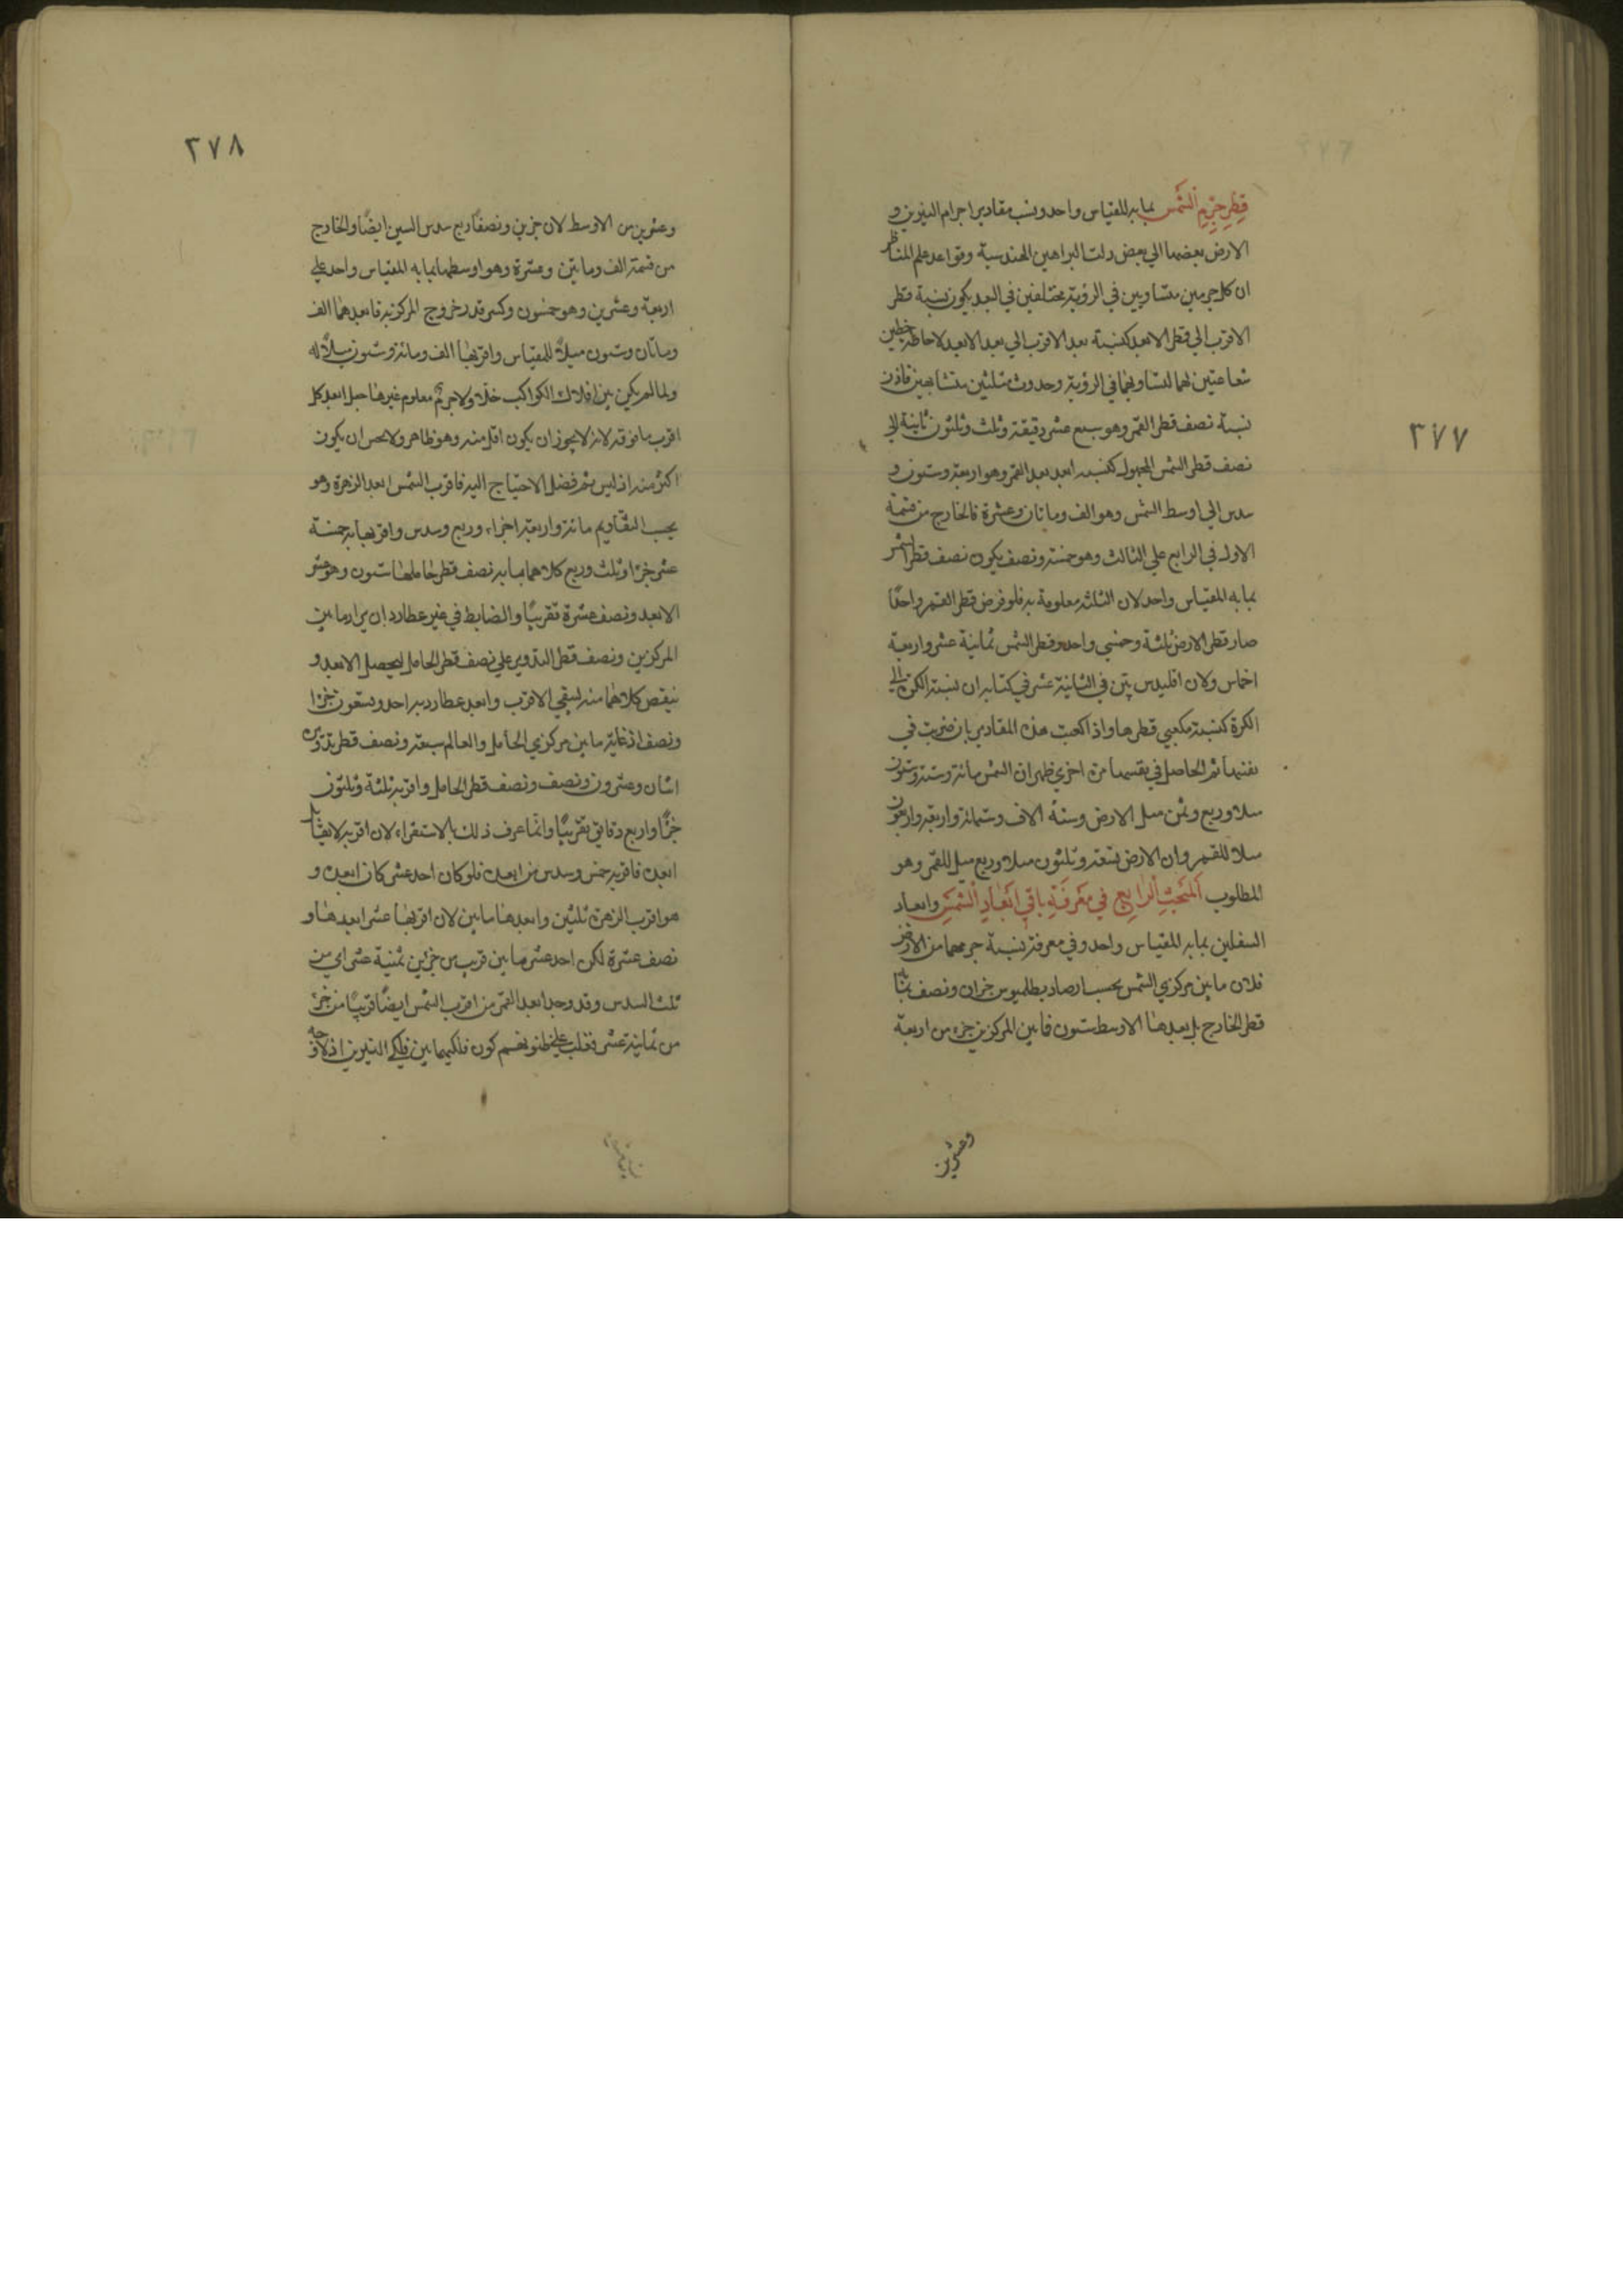 ٣٧٧
قطر جرم الشمس بما به المقياس واحد ونسب مقادير اجرام النيرين و
الارض بعضها الي بعض دلت البراهين الهندسية وقواعد علم المناظر
ان كل جرمين متساويين في الرؤية مختلفين في البعد يكون نسبة قطر
الاقرب الي قطر الابعد كنسبة بعد الاقرب الي بعد الابعد لاحاطة خطين
شعاعيين بهما لتساويهما في الرؤية وحدوث مثلثين متشابهين فاذن
نسبة نصف قطر القمر وهو سبع عشر دقيقة وثلث وثلثون ثانية الي
نصف قطر الشمس المجهول كنسبة ابعد بعد القمر وهو اربعة وستون و
سدس الي اوسط الشمس وهو الف ومائتان وعشرة فالخارج من قسمة
الاول في الرابع علي الثالث وهو خمسة ونصف يكون نصف قطر الشمس
بما به المقياس واحد لان الثلثة معلومة به فلو فرض قطر القمر واحدًا
صار قطر الارض ثلثة وخمسي واحد وقطر الشمس ثمانية عشر واربعة
اخماس ولان اقليدس بين في الثانية عشر في كتابه ان نسبة الكرة الي
الكرة كنسبة مكعبي قطرها واذا كعبت هذه المقادير بان ضربت في
نفسها ثم الحاصل في نفسها مرة اخري ظهر ان الشمس مائة وستة وستون
مثلا وربع وثمن مثل الارض وستة الاف وستمائة واربعة واربعون
مثلا للقمر وان الارض تسعة وثلثون مثلا وربع مثل للقمر وهو
المطلوب المبحث الرابع في معرفة باقي ابعاد الشمس وابعاد
السفلين بما به المقياس واحد وفي معرفة نسبة جرمهما من الارض
فلان ما بين مركزي الشمس بحسب ارصاد بطلميوس جزان ونصف
قطر الخارج بل بعدها الاوسط ستون فما بين المركزين جزء من اربعة
وعشرين
٣٧٨
وعشرين من الاوسط لان جزين ونصفًا ربع سدس الستين ايضًا والخارج
من قسمة الف ومايتين وعشرة وهو اوسطها بما به المقياس واحد علي
اربعة وعشرين وهو خمسون وكسر قدر خروج المركز به فابعدهما الف
ومائتان وستون مثلاً للمقياس واقربها الف ومائة وستون مثلاً له
ولما لم يكن بين افلاك الكواكب خلاء ولا جرم ثم معلوم غيرها جعل ابعد كل
اقرب ما فوقه لانه لا يجوز ان يكون اقل منه وهو ظاهر ولا يحسن ان يكون
اكثر منه اذ ليس ثم فضل الاحتياج اليه فاقرب الشمس ابعد الزهرة وهو
بحسب التقاويم مائة واربعة اجزاء وربع وسدس واقربها به خمسة
عشر جزا وثلث وربع كلاهما بما به نصف قطر حاملها ستون وهو عشر
الابعد ونصف عشرة تقريبًا والضابط في غير عطارد ان يزاد ما بين
المركزين ونصف قطر التدوير علي نصف قطر الحامل ليحصل الابعد و
ينقص كلاهما منه ليبقي الاقرب وابعد عطارد به احد وتسعون جزا
ونصف اذ غاية ما بين مركزي الحامل والعالم سبعة ونصف قطر تدويره
اثنان وعشرون ونصف ونصف قطر الحامل واقربه ثلثة وثلثون
جزًا واربع دقايق تقريبًا وانما عرف ذلك بالاستقراء لان اقربه لا يقابل
ابعده فاقربه خمس وسدس من ابعده فلو كان احد عشر كان ابعده و
هو اقرب الزهرة ثلثين وابعدها مايتين لان اقربها عشر ابعدها و
نصف عشرة لكن احد عشر مايتين قريب من جزين ثمنية عشر اي من
ثلث السدس وقد وجد ابعد القمر من اقرب الشمس ايضًا قريبًا من جزء
من ثمانية عشر فغلب علي ظنونهم كون فلكيهما بين فلكي النيرين اذ لا